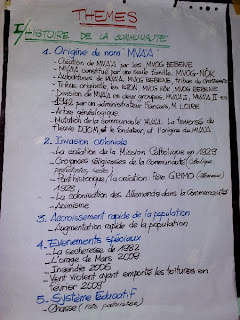 THEMES
I/ HISTOIRE DE LA COMMUNAUTE
1. Origine du nom MVAA
- Création de MVAA par les MVOG BEBEINE
- MVAA constitué par une seule famille, MVOG-NOK
- MVAA, MVOG BEBEINE, tribus de
- Tribus originelle, les MVOG NOK MVOG BEBEINE
- Division de MVAA en deux groupes, MVAA I, MVAA II en
1942 par un administrateur Français M. LOIRE
- Arbres généalogique
- Mutation de la communauté MVAA. La traversée du
fleuve DJOM, le fondateur, et l'origine de MVAA
2. Invasion coloniale
- La création de la Mission Catholique en 1928
- Croyances religieuses de la communauté (Catholique,
protestante)
- Petit historique / la création: Père GRIMO (Allemand)
1928
- La colonisation des Allemands dans la Communauté
- Animisme
3. Accroissement rapide de la population
- Augmentation rapide de la population
4. Evenements spéciaux
- La secheresse de 1982
- L'orage de Mars 2008
- Incendie 2006
- Vent violent ayant emporté les toitures en
février 2008
5. Système Educatif
- Chasse